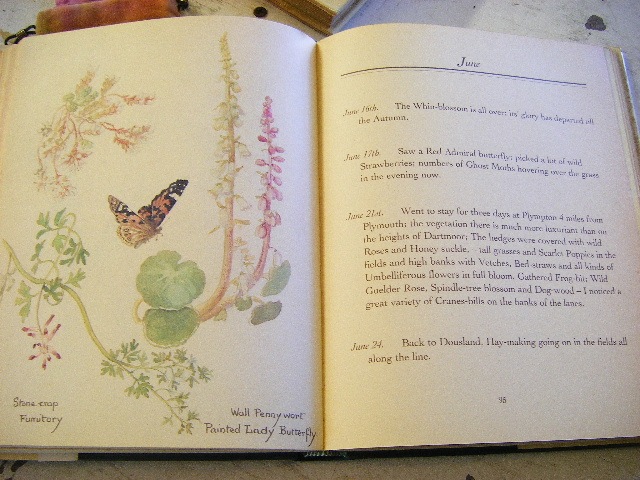 Stone-crop
Fumitory
Wall Pennywort
Painted Lady Butterfly
June
June 16th. The Whin-blossom is all over: its glory has departed till
the Autumn.
June 17th. Saw a Red Admiral butterfly: picked a lot of wild
Strawberries: numbers of Ghost Moths hovering over the grass
in the evening now.
June 21st. Went to stay for three days at Plympton 4 miles from
Plymouth; the vegetation there is much more luxuriant than on
the heights of Dartmoor; The hedges were covered with wild
Roses and Honey suckle, – tall grasses and Scarlet Poppies in the
fields and high banks with Vetches, Bed-straws and all kinds of
Umbelliferous flowers in full bloom. Gathered Frog-bit; Wild
Guelder Rose, Spindle-tree blossom and Dog-wood – I noticed a
great variety of Cranes-bills on the banks of the lanes.
June 24. Back to Dousland. Hay-making going on in the fields all
along the line.